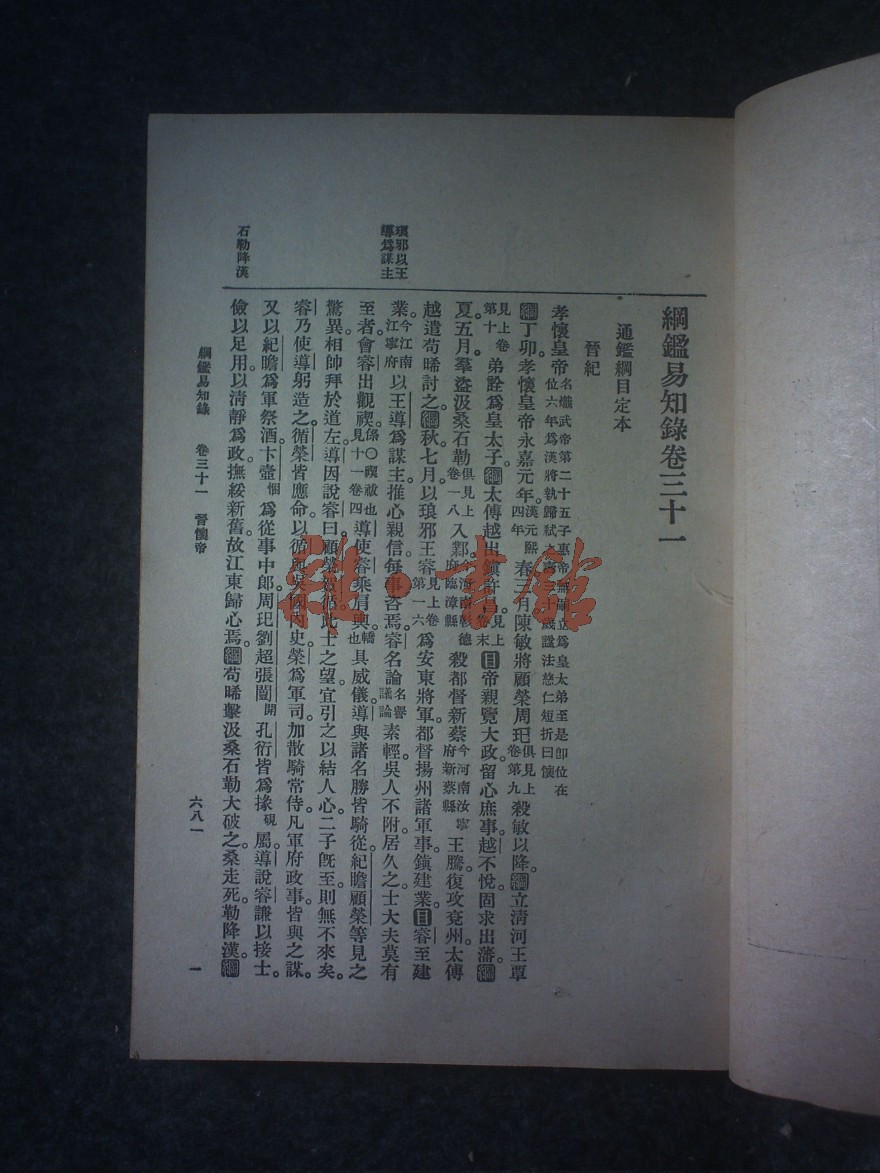 綱鑑易知錄卷三十一
通鑑綱目定本
晉紀
孝懷皇帝名熾武帝第二十五子惠帝無嗣立為皇太弟至是即位在位六年為漢將執歸弒壽三十歲諡法慈仁短折曰懷
綱丁卯孝懷皇帝永嘉元年。漢元熙四年春三月陳敏將顧榮周玘俱見上卷第九殺敏以降。綱立清河王覃
見上卷第十弟詮為皇太子。綱太傅越出鎮許昌。見上卷末目帝親覽大政留心庶事越不悅固求出藩。綱
夏五月羣盜汲桑石勒俱見上卷一八入鄴。今河南彰德府臨漳縣殺都督新蔡今河南汝寧府新蔡縣王騰復攻兗州太傅
越遣苟晞討之。綱秋七月以琅邪王睿見上卷第一六為安東將軍都督揚州諸軍事鎮建業。目睿至建
業。今江南江寧府以王導為謀主推心親信每事咨焉睿名論名譽議論素輕吳人不附居久之士大夫莫有
至者會睿出觀禊。係〇禊祓也見十一卷四導使睿乘肩輿轎也具威儀導與諸名勝皆騎從紀瞻顧榮等見之
驚異相帥拜於道左導因說睿曰顧榮賀循此土之望宜引之以結人心二子既至則無不來矣。
睿乃使導躬造之循榮皆應命以循為吳國內史榮為軍司加散騎常侍凡軍府政事皆與之謀。
又以紀瞻為軍祭酒卞壼悃為從事中郎周玘劉超張闓開孔衍皆為掾硯屬。導說睿謙以接士。
儉以足用以清靜為政撫綏新舊故江東歸心焉。綱苟晞擊汲桑石勒大破之。桑走死。勒降漢。綱
琅邪以王導為謀主
石勒降漢
綱鑑易知錄 卷三十一 晉懷帝
六八一
一
雜·書館